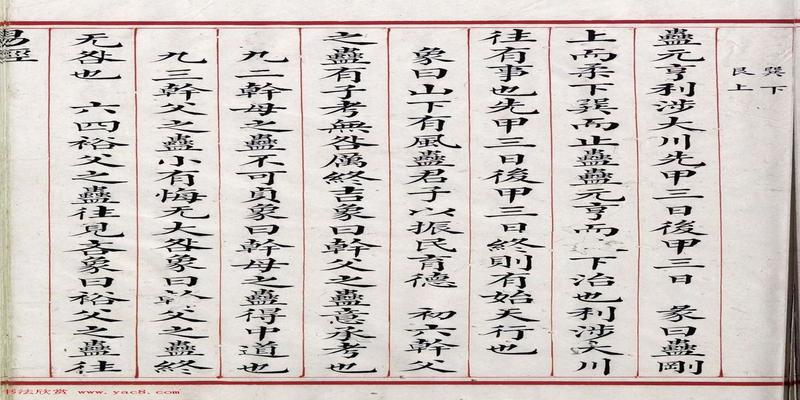 巽下
艮上
蠱元亨利涉大川先甲三日後甲三日 彖曰蠱剛
上而柔下巽而止蠱蠱元亨而 下治也利涉大川
往有事也先甲三日後甲三日終則有始天行也
象曰山下有風蠱君子以振民育德 初六幹父
之蠱有子考無咎厲終吉象曰幹父之蠱意承考也
九二幹母之蠱不可貞象曰幹母之蠱得中道也
九三幹父之蠱小有悔无大咎象曰幹父之蠱終
无咎也 六四裕父之蠱往見吝象曰裕父之蠱往
易經
书法欣赏 www.yac8.com